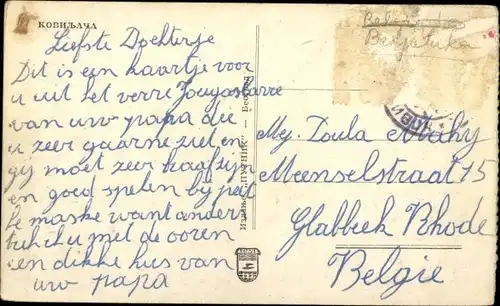 КОВИЉАЧА
Liefste Dochterje
Dit is een kaartje voor
u uit het verre Jougostarre
van uw papa die
u zeer gaarne ziet en
gij moet zeer braaf zijn
en goed spelen bij
maske want anders
u met de ooren
een dikke kus van
uw papa
Mej. Loula Mahy
Meenselstraat 15
Glabbeek Rhode
Belgie